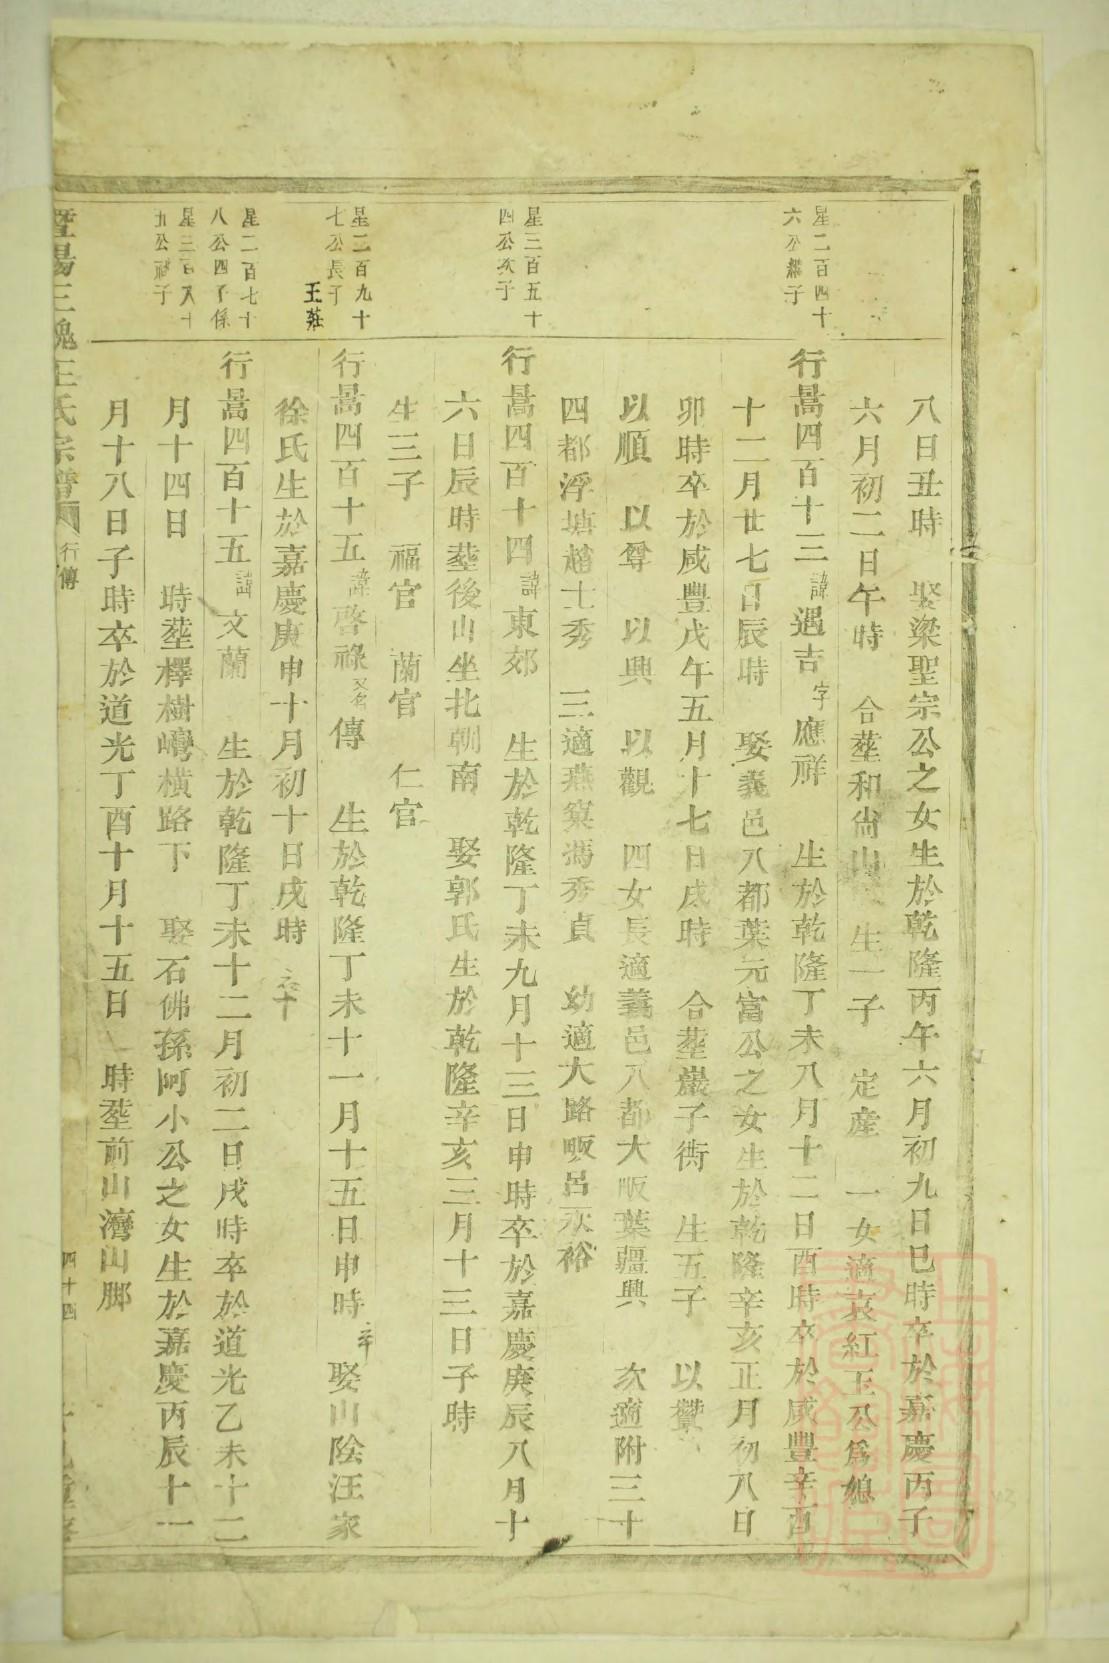 八日丑時　娶梁聖宗公之女生於乾隆丙午六月初九日巳時卒於嘉慶丙子
六月初二日午時　合塟和尚山　生一子　定產　一女適袁紅王公爲媳
星二百四十
六公繼子
行暠四百十三諱遇吉字應祥　生於乾隆丁未八月十二日酉時卒於咸豐辛酉
十二月廿七日辰時　娶義邑八都葉元富公之女生於乾隆辛亥正月初八日
卯時卒於咸豐戊午五月十七日戌時　合塟巖子衖　生五子　以贊
以順　以尊　以興　以觀　四女長適義邑八都大畈葉疆興　次適附三十
四都浮塘趙士秀　三適燕窠馮秀貞　幼適大路畈呂永裕
星三百五十
四公次子
行暠四百十四諱東郊　生於乾隆丁未九月十三日申時卒於嘉慶庚辰八月十
六日辰時塟後山坐北朝南　娶郭氏生於乾隆辛亥三月十三日子時
生三子　福官　蘭官　仁官
星二百九十
七公長子
王莊
行暠四百十五諱啓祿又名傳　生於乾隆丁未十一月十五日申時　卒　娶山陰汪家
徐氏生於嘉慶庚申十月初十日戌時　卒
星二百七十
八公四子係
星三百八十
五公嗣子
行暠四百十五諱文蘭　生於乾隆丁未十二月初二日戌時卒於道光乙未十二
月十四日　時塟檡樹嶹橫路下　娶石佛孫阿小公之女生於嘉慶丙辰十一
月十八日子時卒於道光丁酉十月十五日　時塟前山灣山脚
暨陽三槐王氏宗譜
行傳
四十四